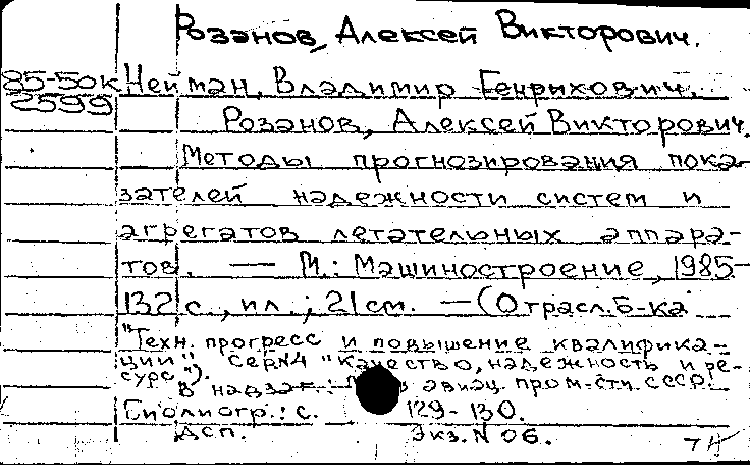 Розанов, Алексей Викторович.
85-50к Нейман, Владимир Генрихович.
2599
Розанов, Алексей Викторович.
Методы прогнозирования пока-
зателей надежности систем и
агрегатов летательных аппара-
тов. — М.: Машиностроение, 1985-
132 с., ил.; 21 см. — (Отрасл. б-ка
"Техн. прогресс и повышение квалифика-
ции". Сер. N4 "Качество, надежность и ре-
сурс").
В надзаг.: авиац. пром-сти СССР.
Библиогр.: с. 129-130.
Дсп. Экз. N 06.